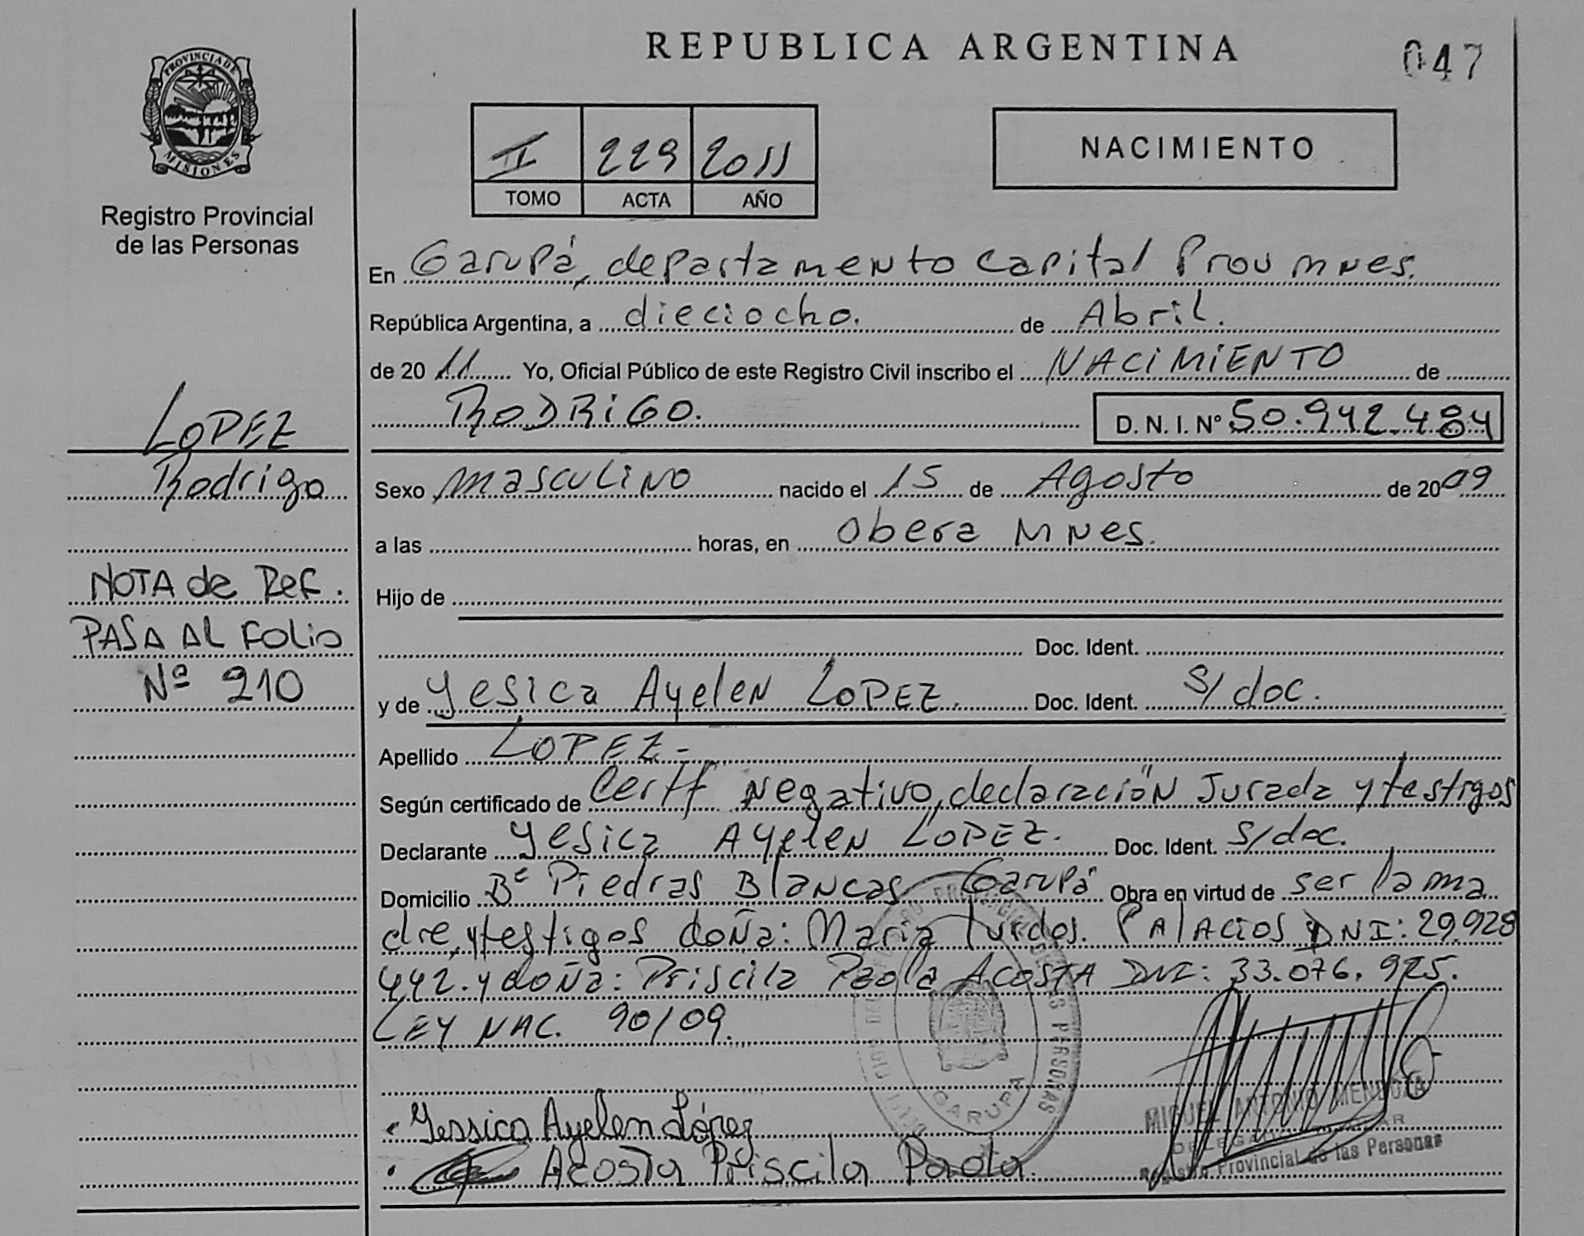 PROVINCIA DE
MISIONES
Registro Provincial
de las Personas
REPUBLICA ARGENTINA
047
II 229 2011
TOMO ACTA AÑO
NACIMIENTO
En Garupá, departamento Capital Prov mnes.
República Argentina, a dieciocho. de Abril.
de 20 11 Yo, Oficial Público de este Registro Civil inscribo el NACIMIENTO de
RODRIGO. D. N. I. Nº 50.942.484
LOPEZ
Rodrigo
NOTA de Ref.
PASA AL FOLIO
Nº 210
Sexo masculino nacido el 15 de Agosto de 2009
a las horas, en Obera MNes.
Hijo de
Doc. Ident.
y de Yesica Ayelen LOPEZ. Doc. Ident. S/doc.
Apellido LOPEZ-
Según certificado de Certf Negativo, declaración Jurada y testigos
Declarante Yesica AYelen LOPEZ. Doc. Ident. S/doc.
Domicilio Bº Piedras Blancas Garupá Obra en virtud de ser la ma
dre, y testigos doña: Maria Lurdes. PALACIOS DNI: 29.928
442. y doña: Priscila Paola ACOSTA DNI: 33.076.925.
LEY NAC. 90/09.
GARUPA
Yessica Ayelen López
Acosta Priscila Paola
MIGUEL ANTONIO MENDOZA
DELEGADO TITULAR
Registro Provincial de las Personas